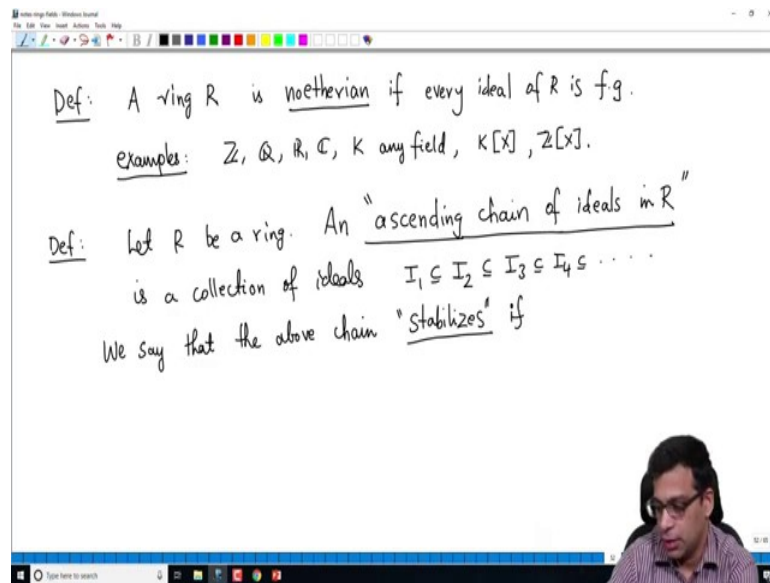 notes-rings-fields - Windows Journal
File Edit View Insert Actions Tools Help
Def: A ring R is noetherian if every ideal of R is f.g.
examples: ℤ, ℚ, ℝ, ℂ, K any field, K[X], ℤ[X].
Def: Let R be a ring. An "ascending chain of ideals in R"
is a collection of ideals I₁ ⊆ I₂ ⊆ I₃ ⊆ I₄ ⊆ .....
We say that the above chain "stabilizes" if
Type here to search